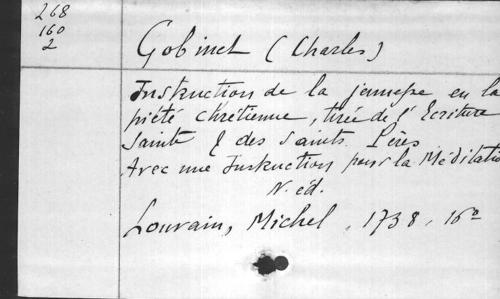 268
160
2
Gobinet (Charles)
Instruction de la jeunesse en la
piété chrétienne, tirée de l'Ecriture
Sainte & des Saints Pères
Avec une Instruction pour la Méditatio
N. éd.
Louvain, Michel, 1738, 16°